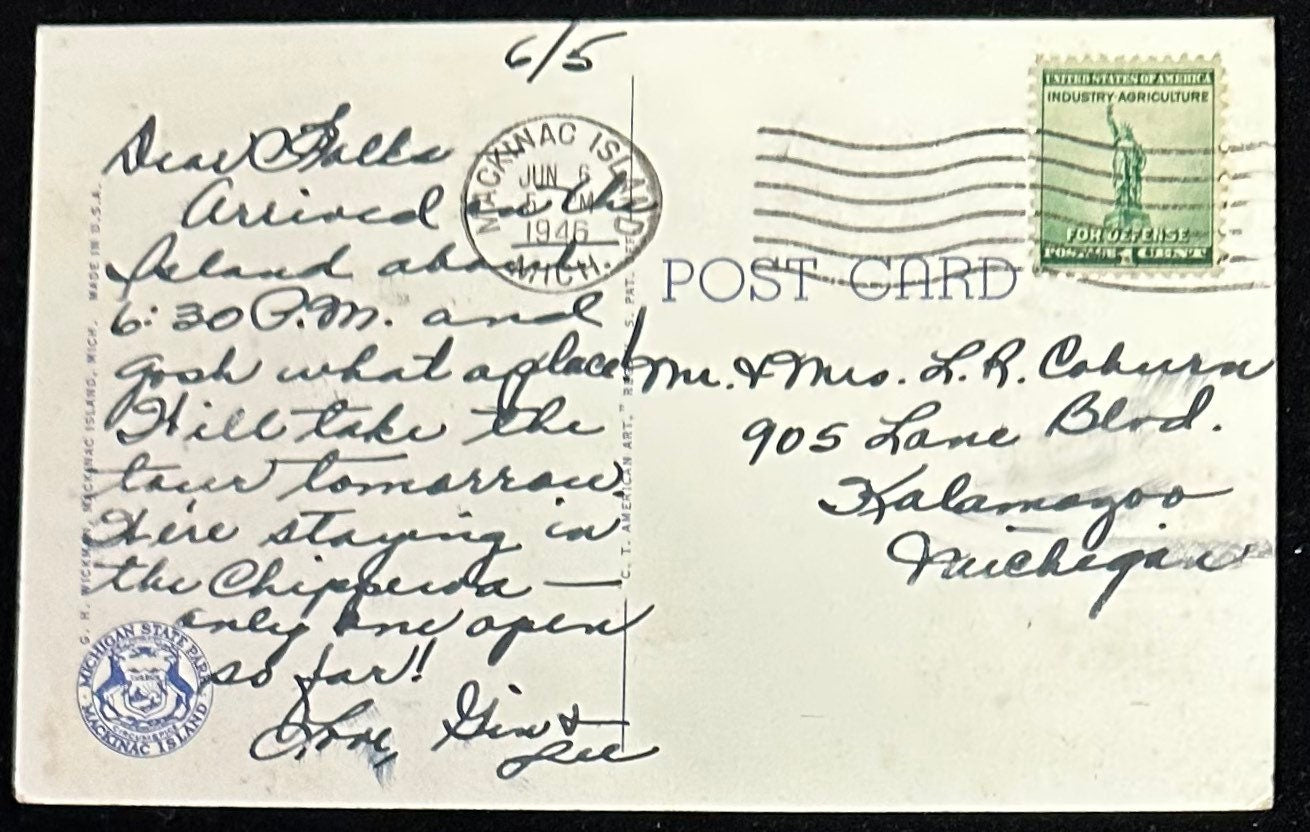 6/5
Dear Folks
Arrived on the
Island about
6:30 P.M. and
gosh what a place!
Will take the
tour tomorrow.
We're staying in
the Chippewa —
only one open
so far!!
Love, Gin &
Lee
MACKINAC ISLAND
JUN 6
5 M
1946
MICH.
UNITED STATES OF AMERICA
INDUSTRY · AGRICULTURE
FOR DEFENSE
POST CARD
Mr. & Mrs. L. R. Coburn
905 Lane Blvd.
Kalamazoo
Michigan
G. H. WICKMAN, MACKINAC ISLAND, MICH. MADE IN U.S.A.
C. T. AMERICAN ART," S. PAT.
MICHIGAN STATE PARK
MACKINAC ISLAND
CIRCUMSPICE